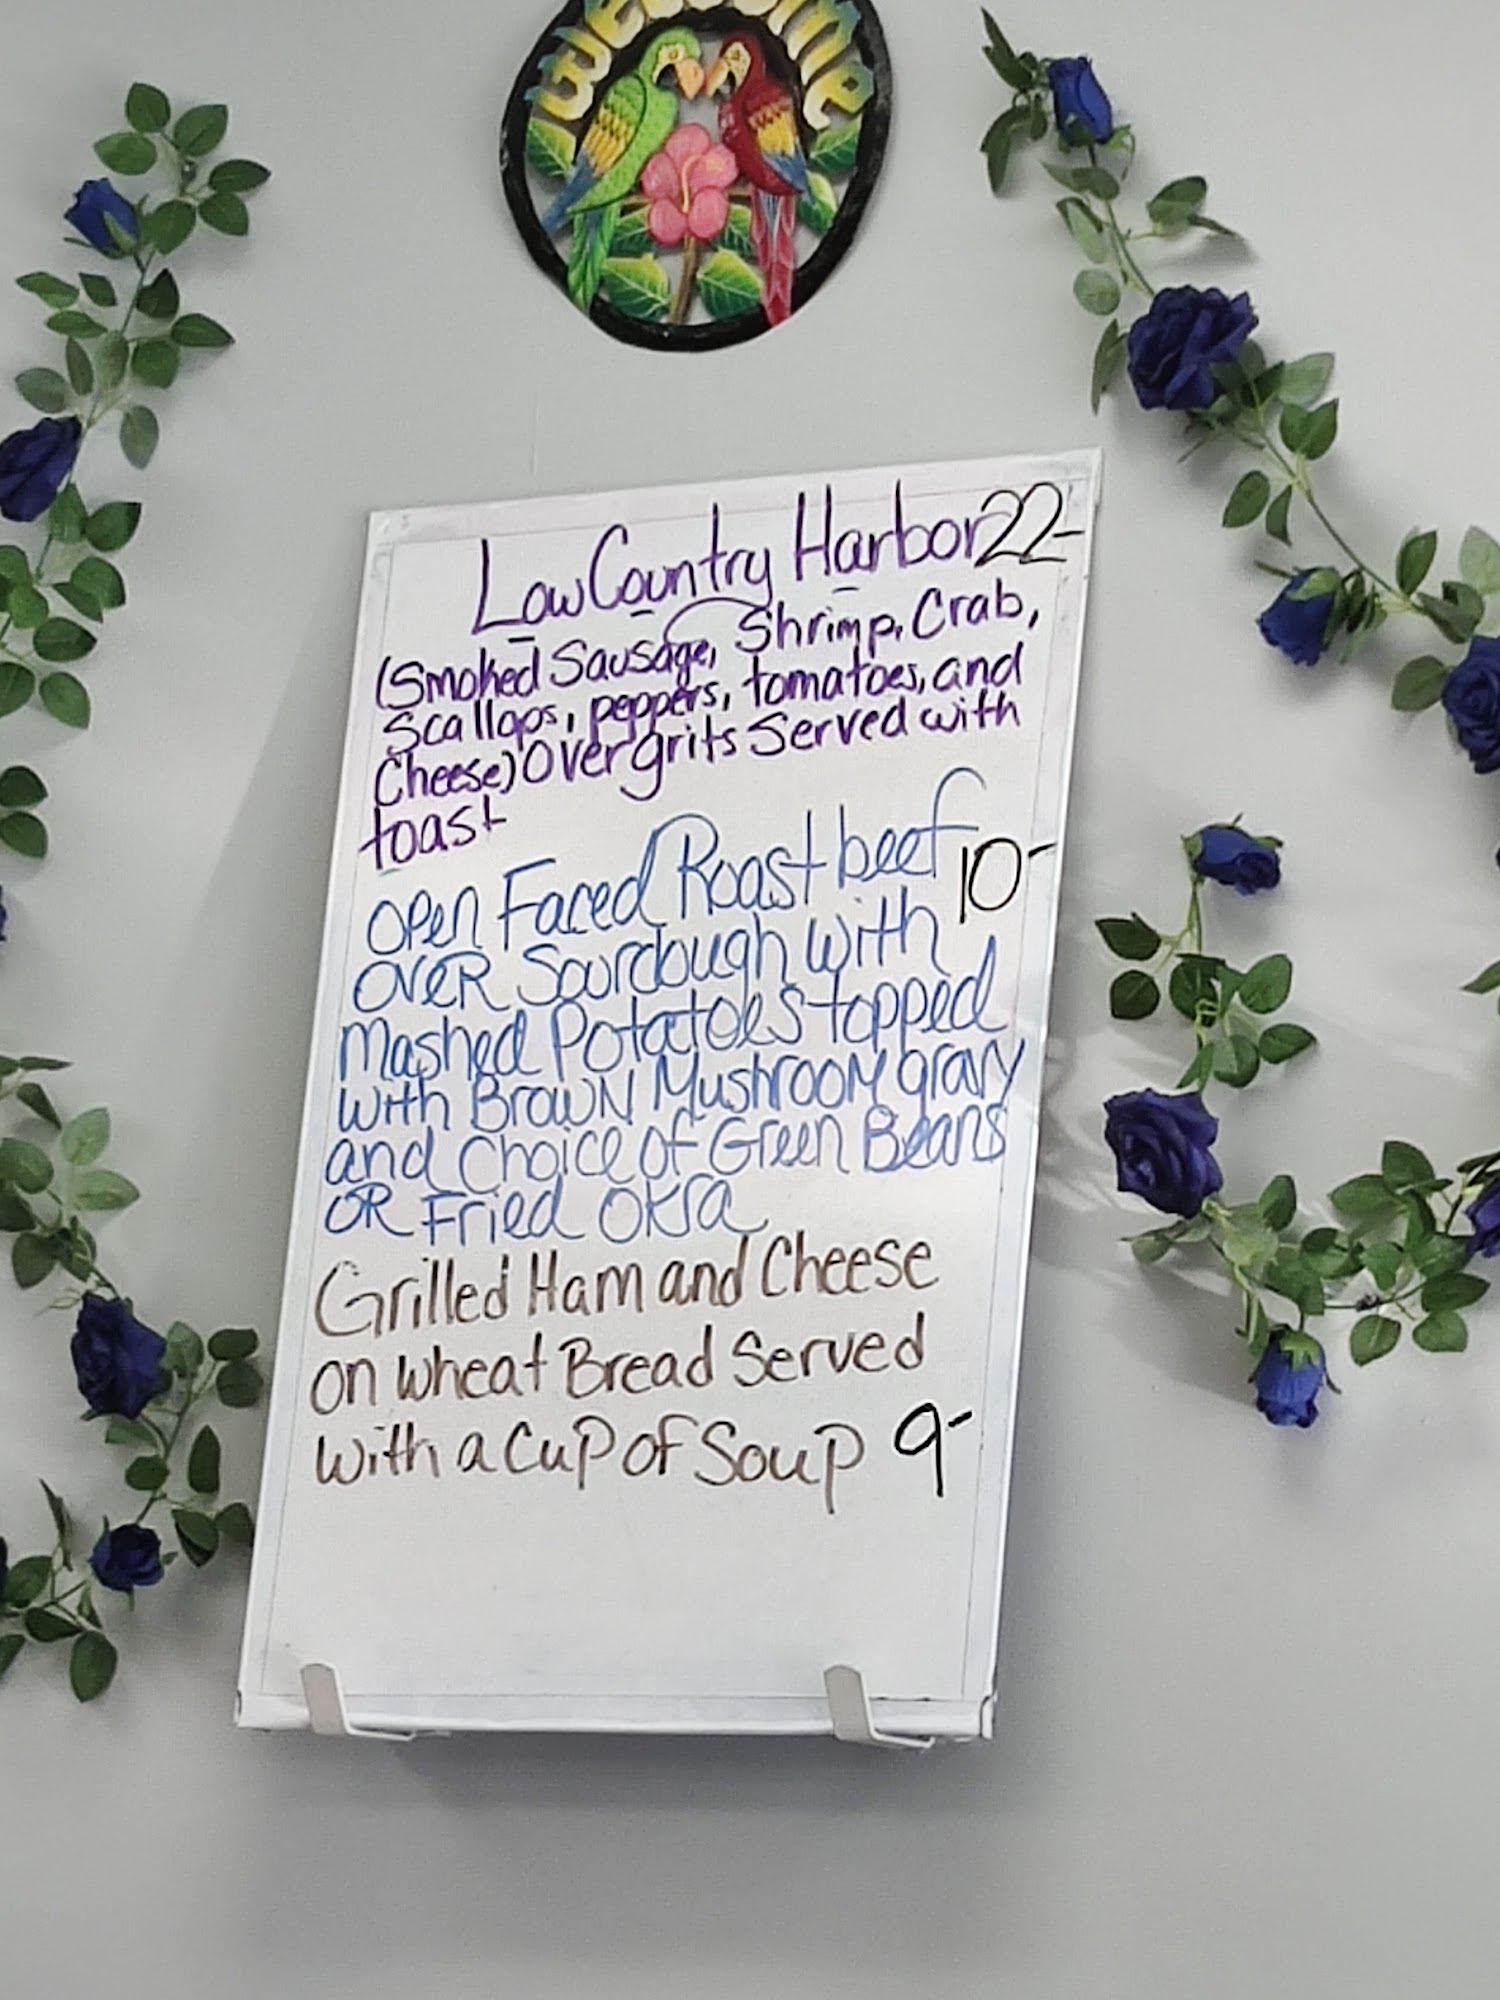 Welcome
Low Country Harbor 22-
(Smoked Sausage, Shrimp, Crab,
Scallops, peppers, tomatoes, and
Cheese) Over grits Served with
toast
Open Faced Roast beef 10-
OVER Sourdough with
Mashed Potatoes topped
with BROWN Mushroom gravy
and Choice of Green Beans
OR Fried Okra
Grilled Ham and Cheese
on wheat Bread Served
with a Cup of Soup 9-